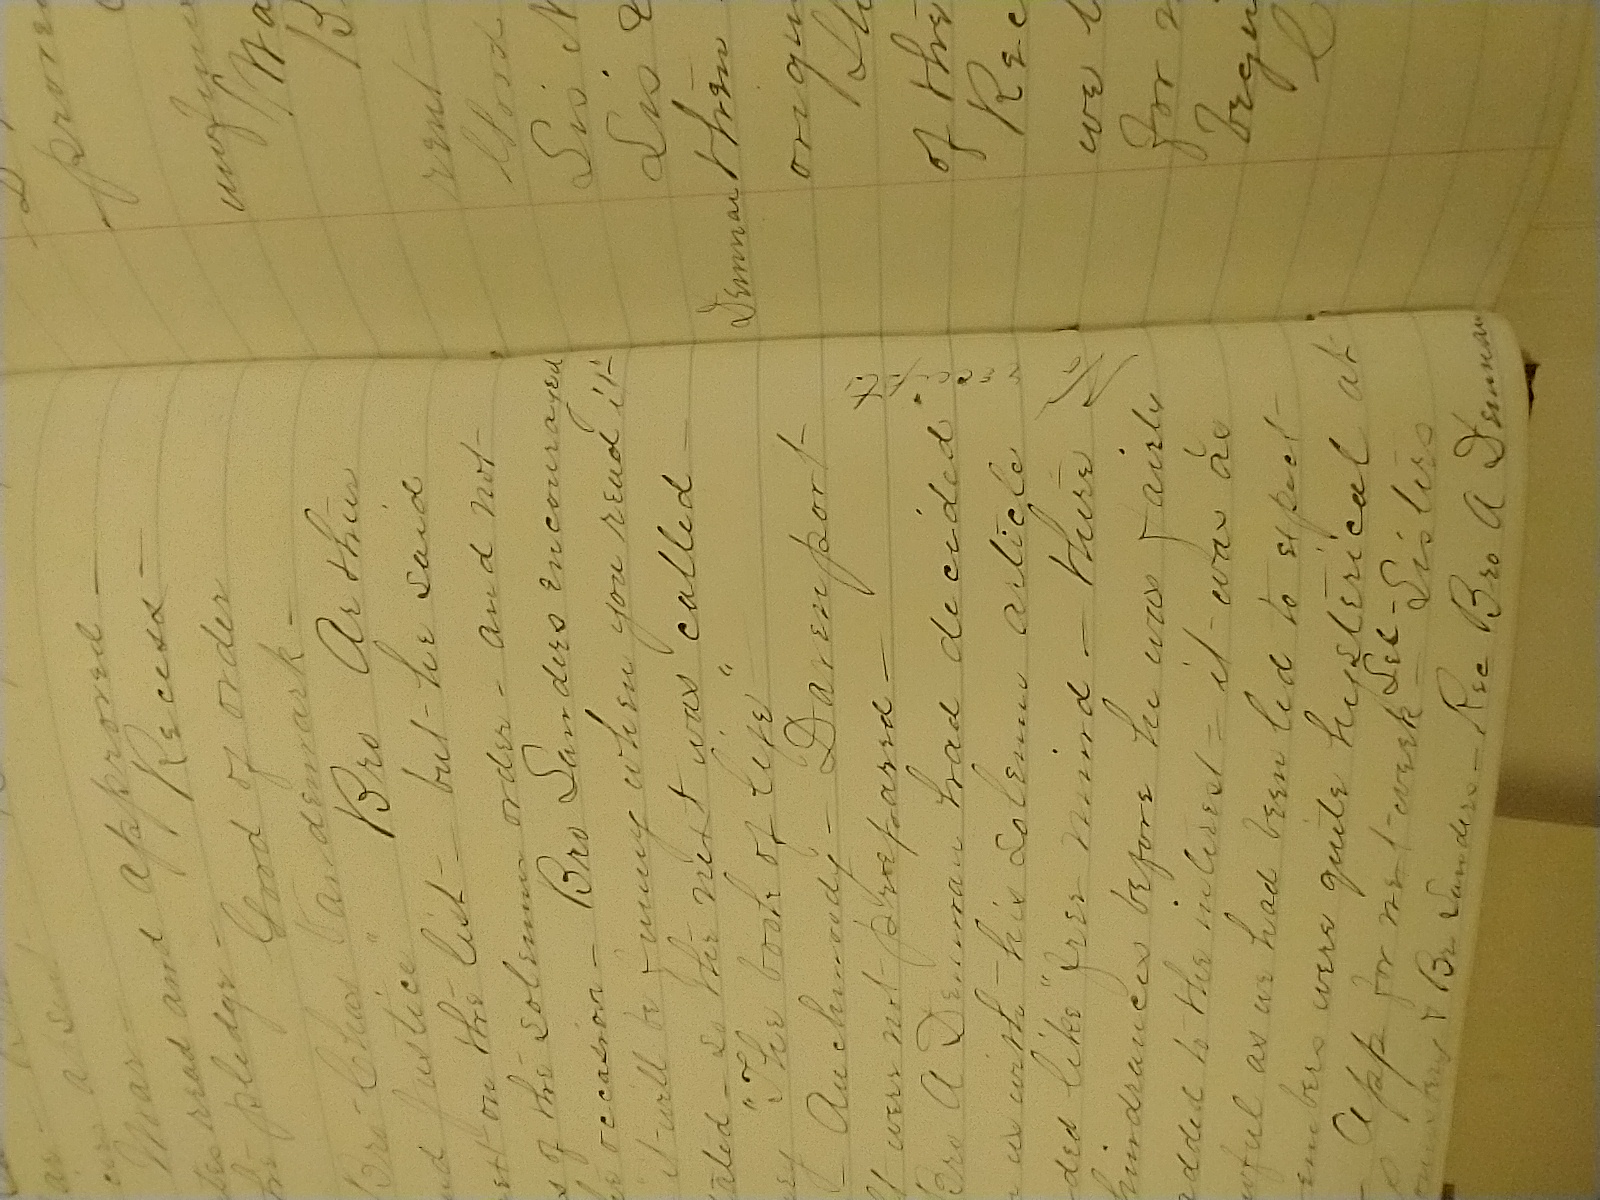 absent
Mar —
read and approved —
pledge — Recess —
Good of order
Bro Chas Vandemark —
Justice" Bro Arthur
on the list — but he said
s of the solemn order - and not
occasion — Bro Sanders encouraged
it will be funny when you read it"
so the next was called —
"The book of life"
— Auchmoody — Davenport
were not prepared —
Bro A Denman had decided
us with his solemn article
ded like "free mind — there
hindrances before he was fairly
added to the interest = it was as
wful as we had been led to expect
embers were quite hysterical at
— App for next week = Sel - Sisters
& Bro Sanders — Rec Bro A Denman
No receipts
prove
Wa
B
rent
Good
Sis N
Sis
Denman then
origin
of the
Rec
we
for n
begin